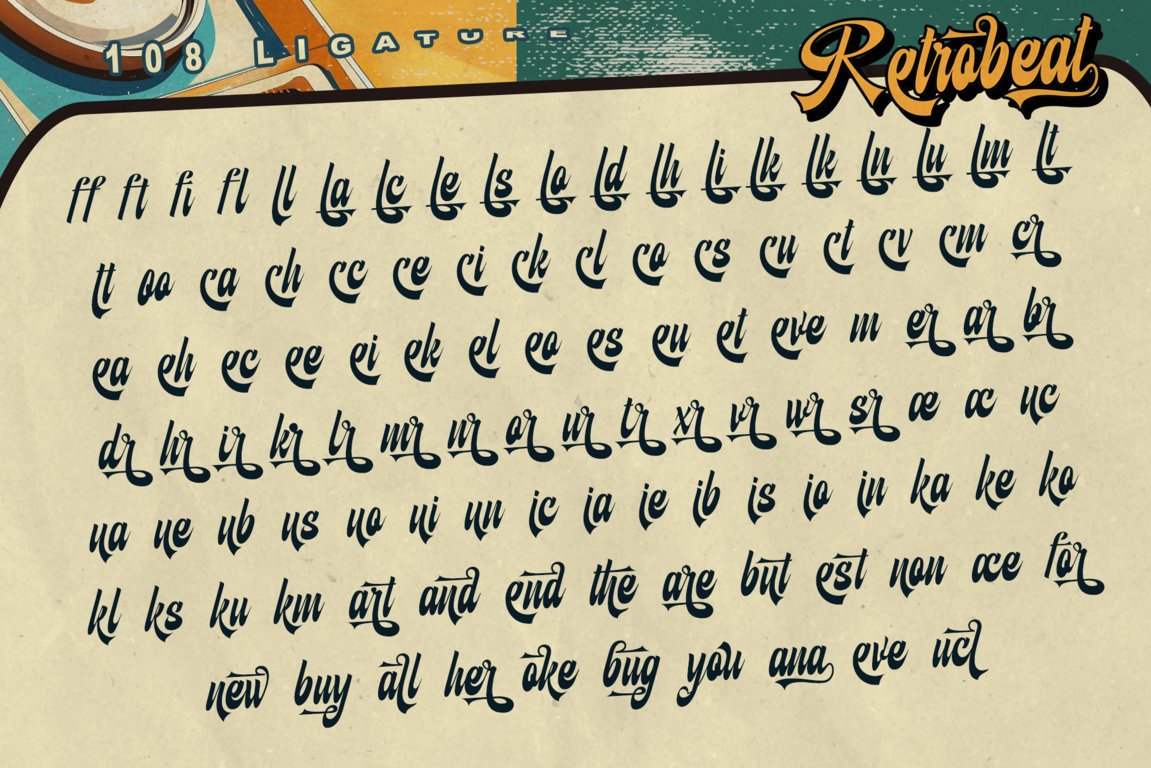 108 LIGATURE
Retrobeat
ff ft fi fl ll la lc le ls lo ld lh li lk lk ln lu lm lt
tt oo ca ch cc ce ci ck cl co cs cu ct cv cm cr
ea eh ec ee ei ek el eo es eu et eve m er ar br
dr hr ir kr lr mr nr or ur tr xr vr wr sr æ œ uc
na ne nb ns no ni nn ic ia ie ib is io in ka ke ko
kl ks ku km art and end the are but est non œe for
new buy all her oke bug you ana eve ucl